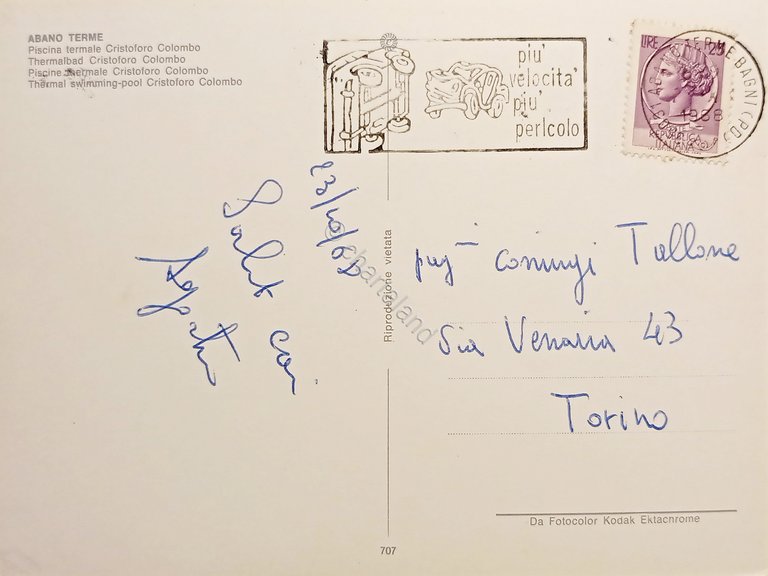 ABANO TERME
Piscina termale Cristoforo Colombo
Thermalbad Cristoforo Colombo
Piscine thermale Cristoforo Colombo
Thermal swimming-pool Cristoforo Colombo
piu'
velocita'
piu'
pericolo
LIRE 25
1968
REPUBBLICA
ITALIANA
TERME BAGNI (PD)
23/10/68
Saluti cari
Riproduzione vietata
chanaland
coniugi Tallone
Via Venaria 43
Torino
Da Fotocolor Kodak Ektachrome
707